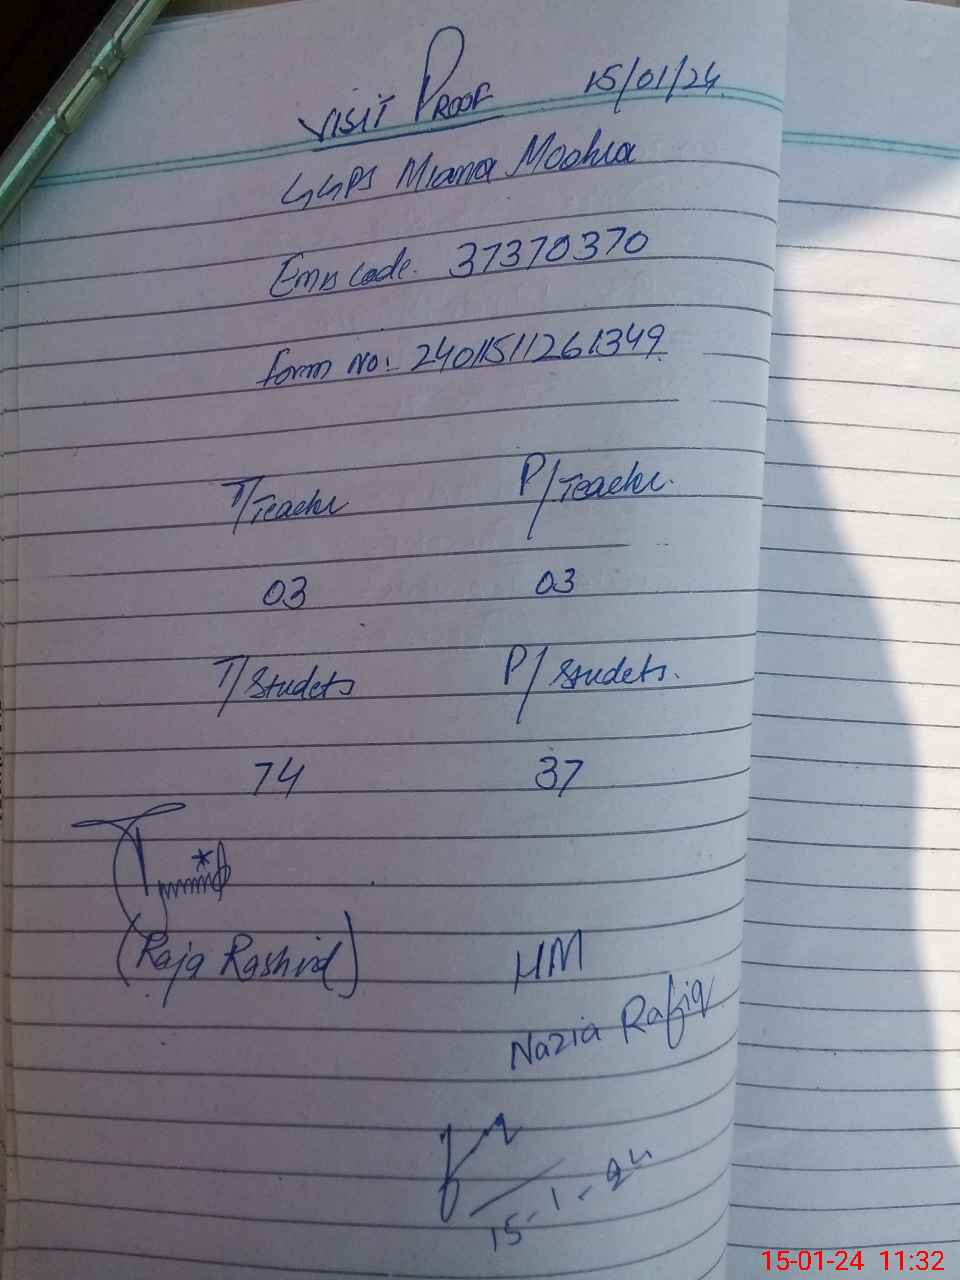 VISIT PROOF 15/01/24
GGPS Miana Moohra
Emis Code. 37370370
form No:- 24011511261349
T/Teacher P/Teacher.
03 03
T/Studets P/Studets.
74 37
(Raja Rashid)
HM
Nazia Rafiq
15-1-24
15-01-24 11:32